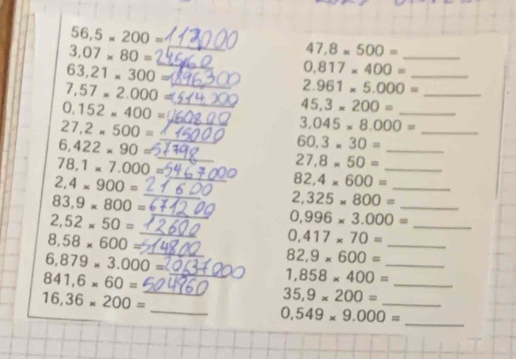 56,5 × 200 = 113000
3,07 × 80 = 24560
63,21 × 300 = 1896300
7,57 × 2.000 = 1514000
0,152 × 400 = 60800
27,2 × 500 =
6,422 × 90 = 57798
78,1 × 7.000 = 5467000
2,4 × 900 = 21600
83,9 × 800 = 671200
2,52 × 50 = 12600
8,58 × 600 = 514800
6,879 × 3.000 = 20637000
841,6 × 60 = 504960
16,36 × 200 =
47,8 × 500 =
0,817 × 400 =
2.961 × 5.000 =
45,3 × 200 =
3,045 × 8.000 =
60,3 × 30 =
27,8 × 50 =
82,4 × 600 =
2,325 × 800 =
0,996 × 3.000 =
0,417 × 70 =
82,9 × 600 =
1,858 × 400 =
35,9 × 200 =
0,549 × 9.000 =